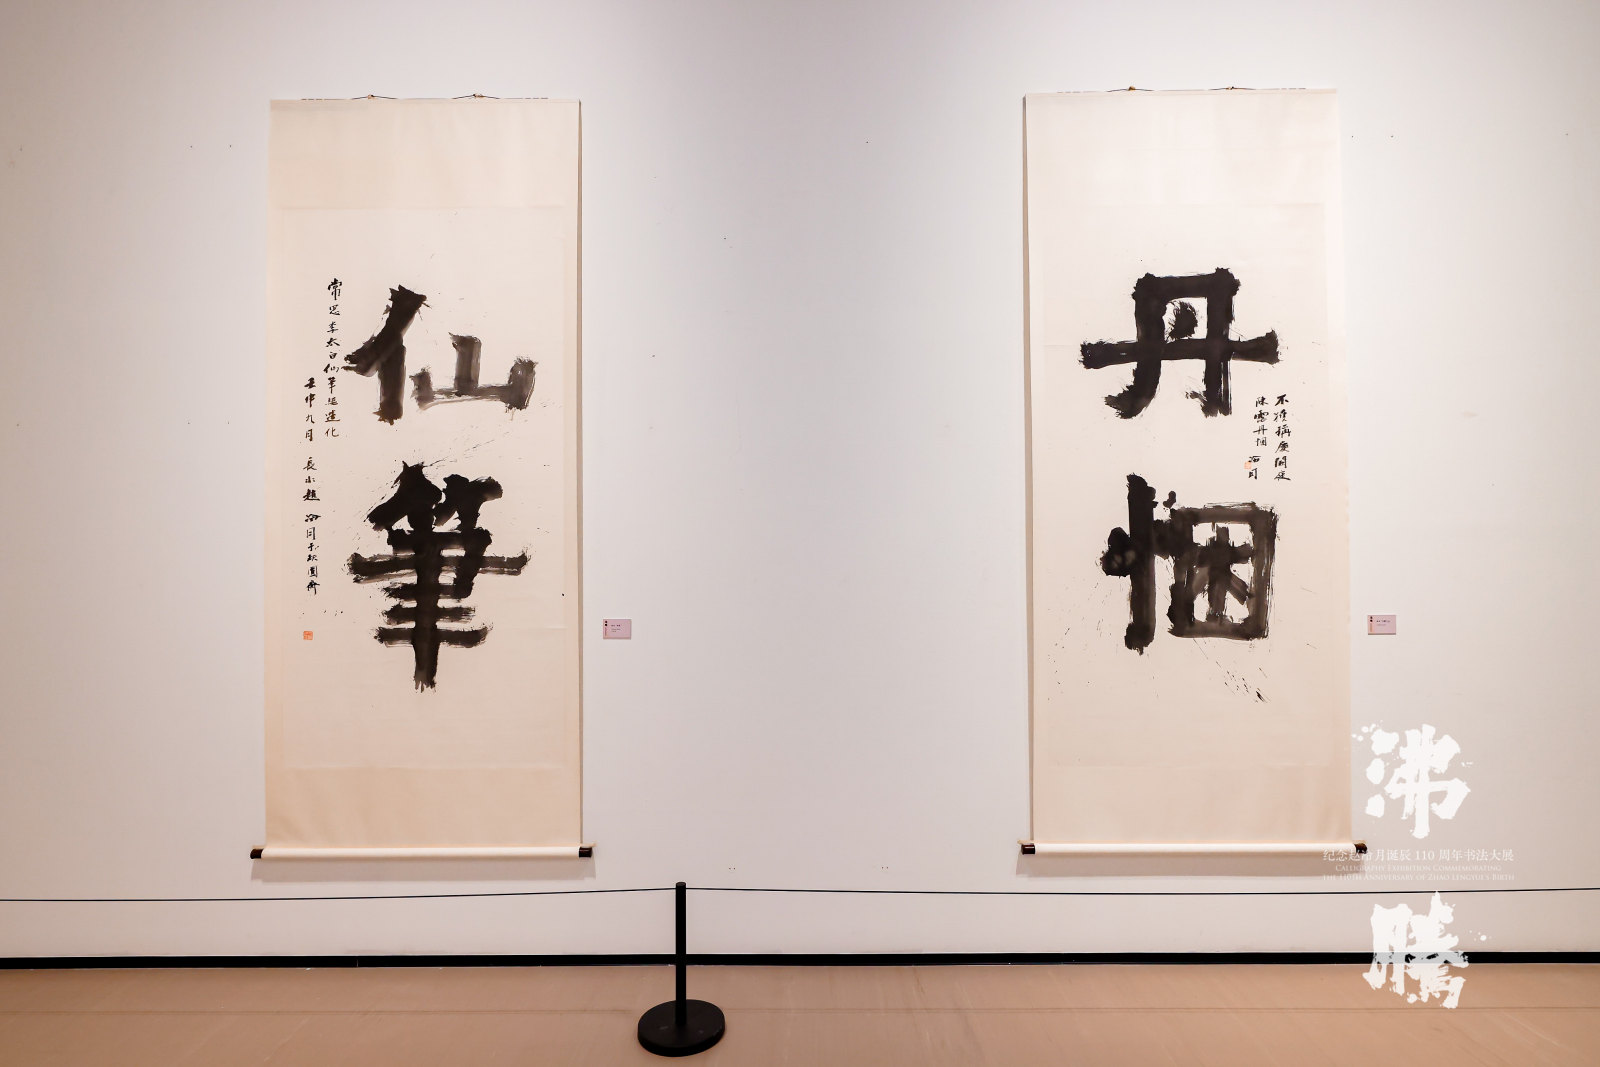 仙
筆
常思李太白仙筆驅造化
壬申九月 長水趙冷月於秋圃齋
丹
悃
稱慶闕庭
陳露丹悃 冷月
沸
纪念赵冷月诞辰 110 周年书法大展
Calligraphy Exhibition Commemorating
the 110th Anniversary of Zhao Lengyue's Birth
騰